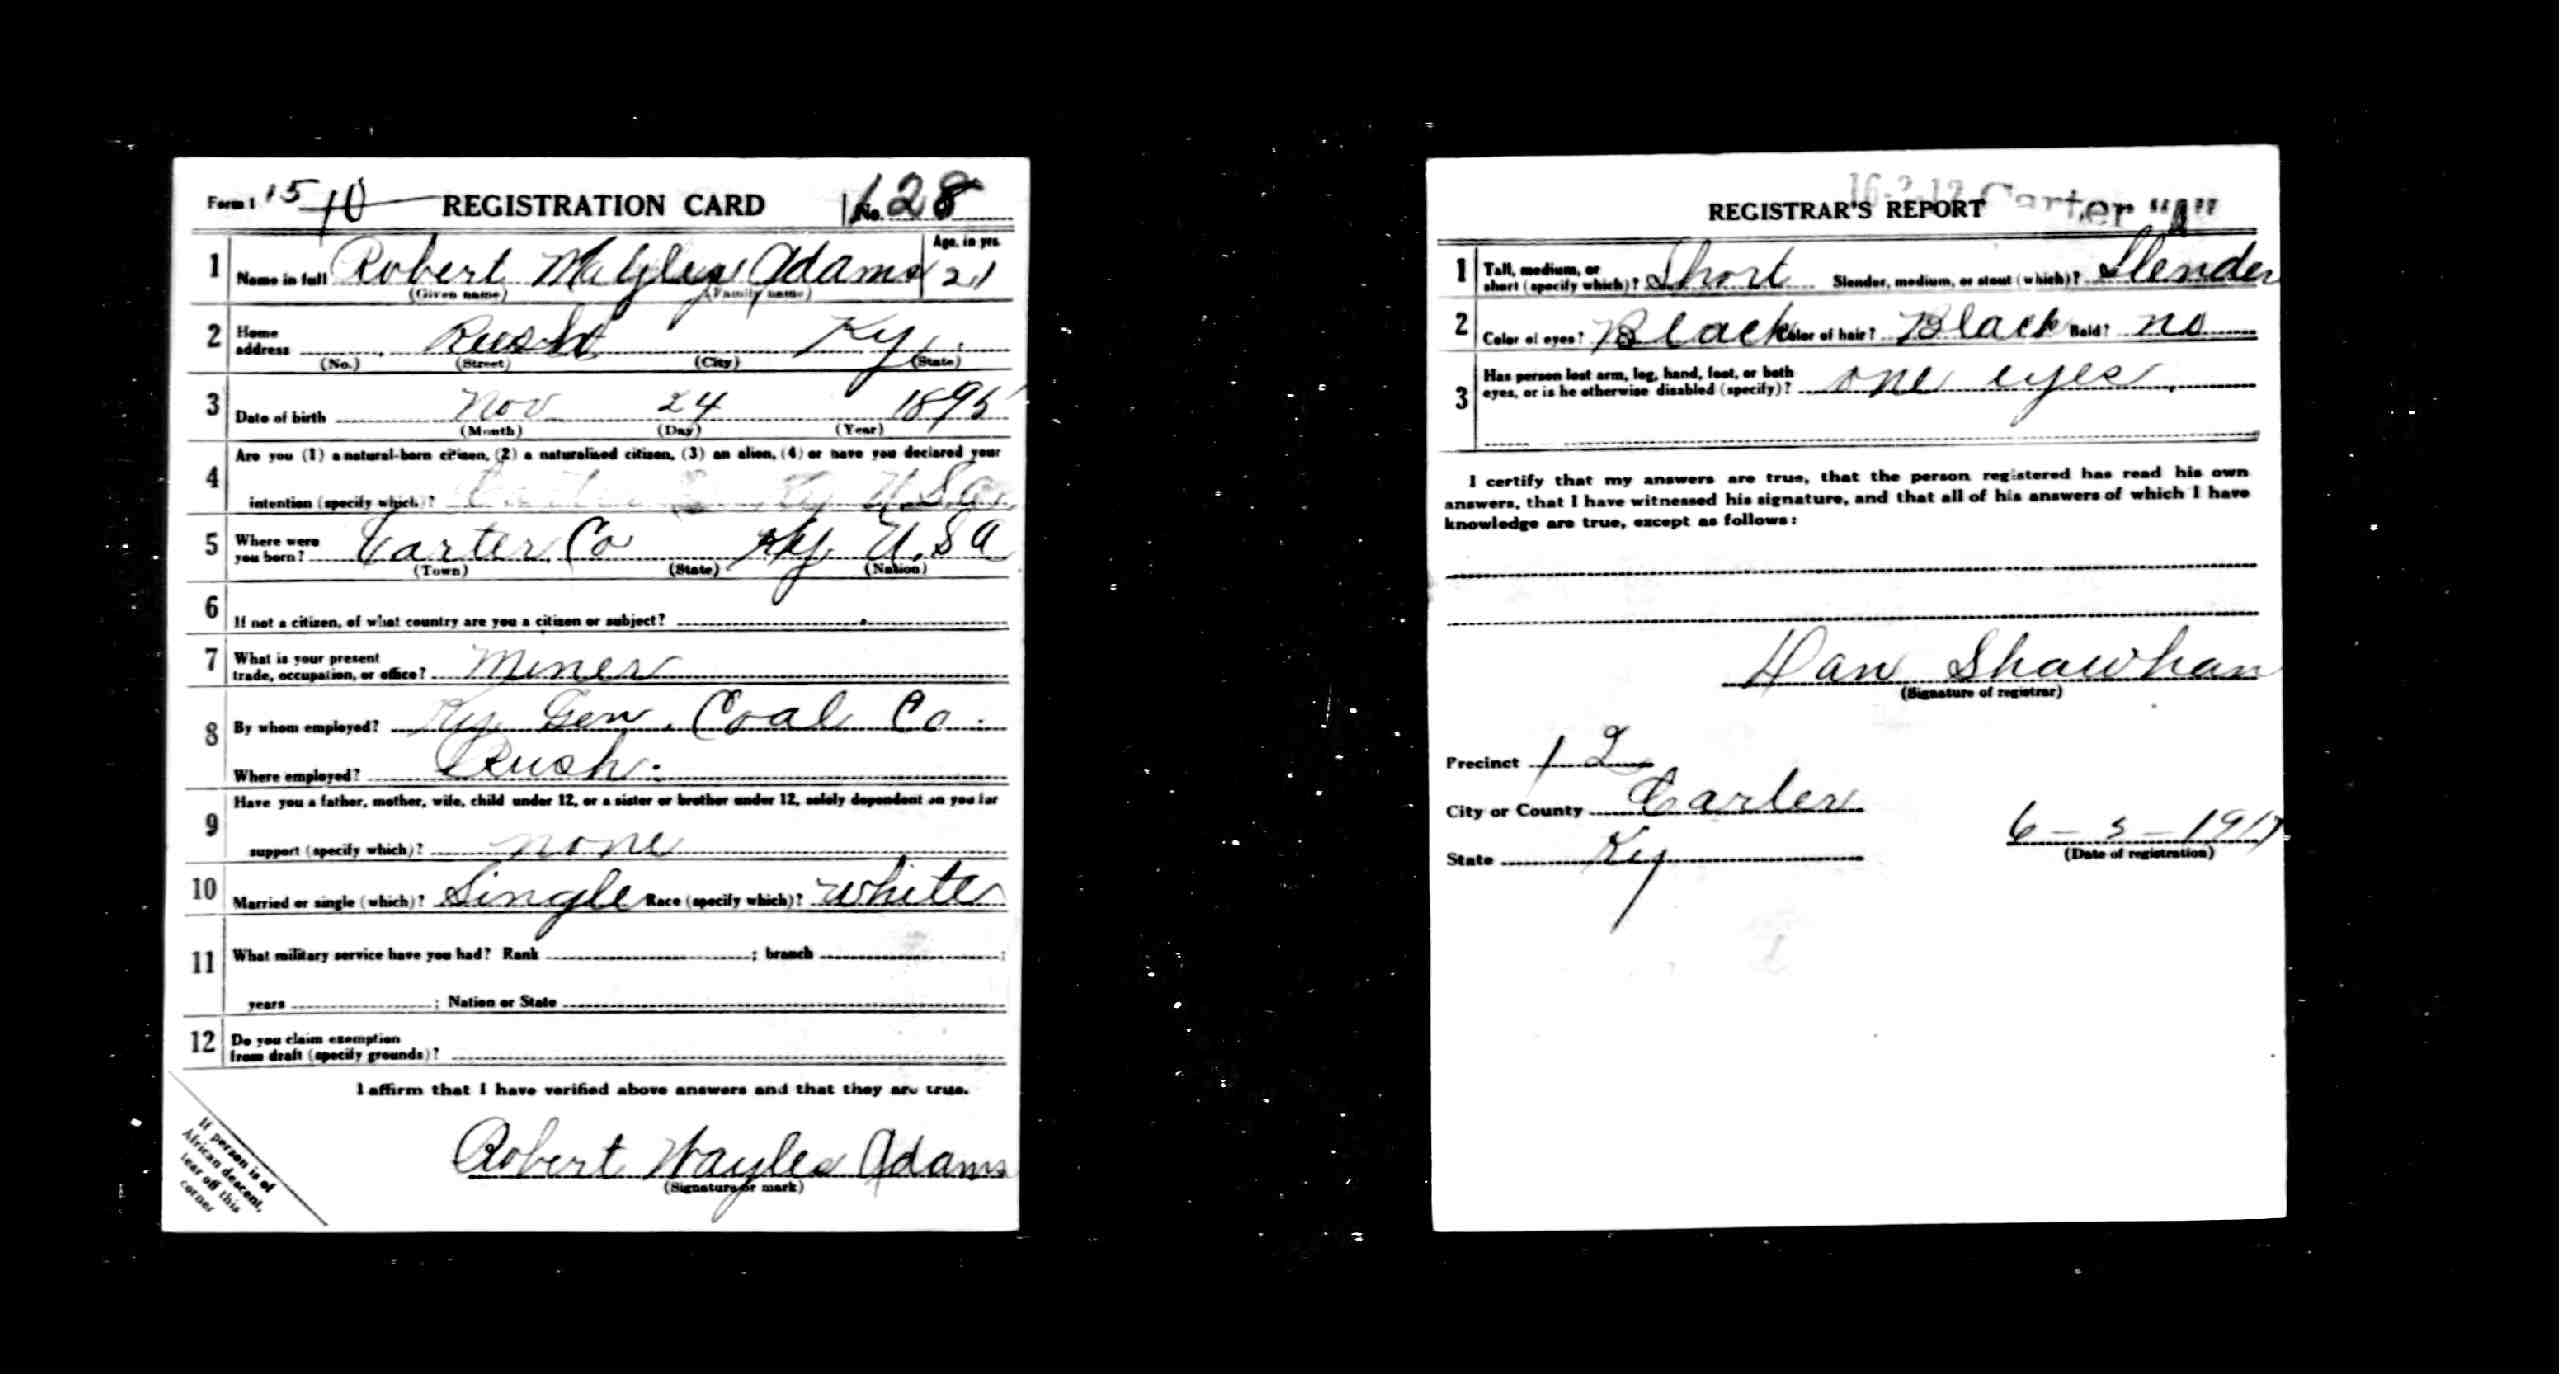 Form 1 15 10 REGISTRATION CARD No. 128
1 Name in full Robert Wayles Adams Age, in yrs. 21
(Given name) (Family name)
2 Home address Rush Ky.
(No.) (Street) (City) (State)
3 Date of birth Nov 24 1895
(Month) (Day) (Year)
4 Are you (1) a natural-born citizen, (2) a naturalized citizen, (3) an alien, (4) or have you declared your
intention (specify which)? Ky U.Sa.
5 Where were you born? Carter Co Ky. U.Sa
(Town) (State) (Nation)
6 If not a citizen, of what country are you a citizen or subject?
7 What is your present trade, occupation, or office? Miner
8 By whom employed? Ky Gen. Coal Co.
Where employed? Rush.
9 Have you a father, mother, wife, child under 12, or a sister or brother under 12, solely dependent on you for
support (specify which)? none
10 Married or single (which)? Single Race (specify which)? White
11 What military service have you had? Rank ; branch ;
years ; Nation or State
12 Do you claim exemption
from draft (specify grounds)?
I affirm that I have verified above answers and that they are true.
Robert Wayles Adams
(Signature or mark)
If person is of
African descent,
tear off this
corner
16-2-12 Carter "A"
REGISTRAR'S REPORT
1 Tall, medium, or short (specify which)? Short Slender, medium, or stout (which)? Slender
2 Color of eyes? Black Color of hair? Black Bald? no
3 Has person lost arm, leg, hand, foot, or both
eyes, or is he otherwise disabled (specify)? one eyes
I certify that my answers are true, that the person registered has read his own
answers, that I have witnessed his signature, and that all of his answers of which I have
knowledge are true, except as follows:
Dan Shawhan
(Signature of registrar)
Precinct 12
City or County Carter
State Ky
6-5-1917
(Date of registration)